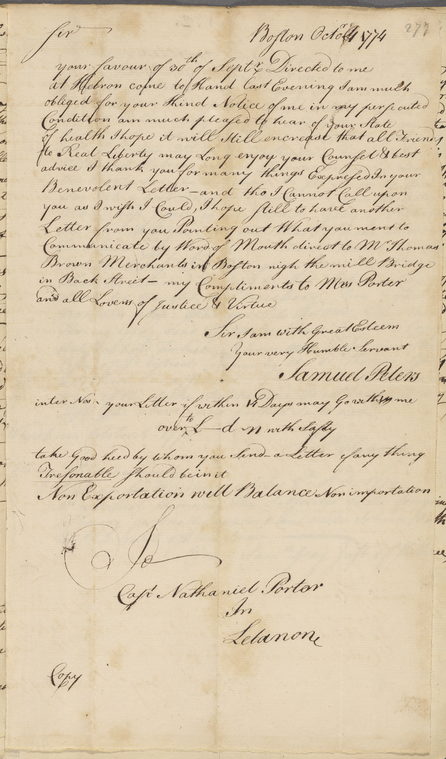 Sir Boston Octor 4 1774 277
your favour of 30th of Septr Directed to me
at Hebron come to Hand Last Evening I am much
obliged for your Kind Notice of me in my persecuted
Condition am much pleased to hear of your State
of health I hope it will Still encrease that all Friends
to Real Liberty may Long enjoy your Counsel & best
advice I thank you for many things Expressed in your
Benevolent Letter – and tho I Cannot Call upon
you as I wish I Could, I hope still to have another
Letter from you Pointing out What you ment to
Communicate by Word of Mouth direct to Mr Thomas
Brown Merchants in Boston nigh the mill Bridge
in Back Street – my Compliments to Mrs Porter
and all Lovers of Justice & Virtue
Sir I am with Great Esteem
Your very Humble Servant
Samuel Peters
inter Nos – your Letter if within 14 Days may Go with me
over to L—d n with Safty
take Good heed by whom you Send a Letter if any thing
Tresonable Should be in it
Non Exportation will Balance Non importation
To
Capt Nathaniel Porter
In
Lebanon
Copy